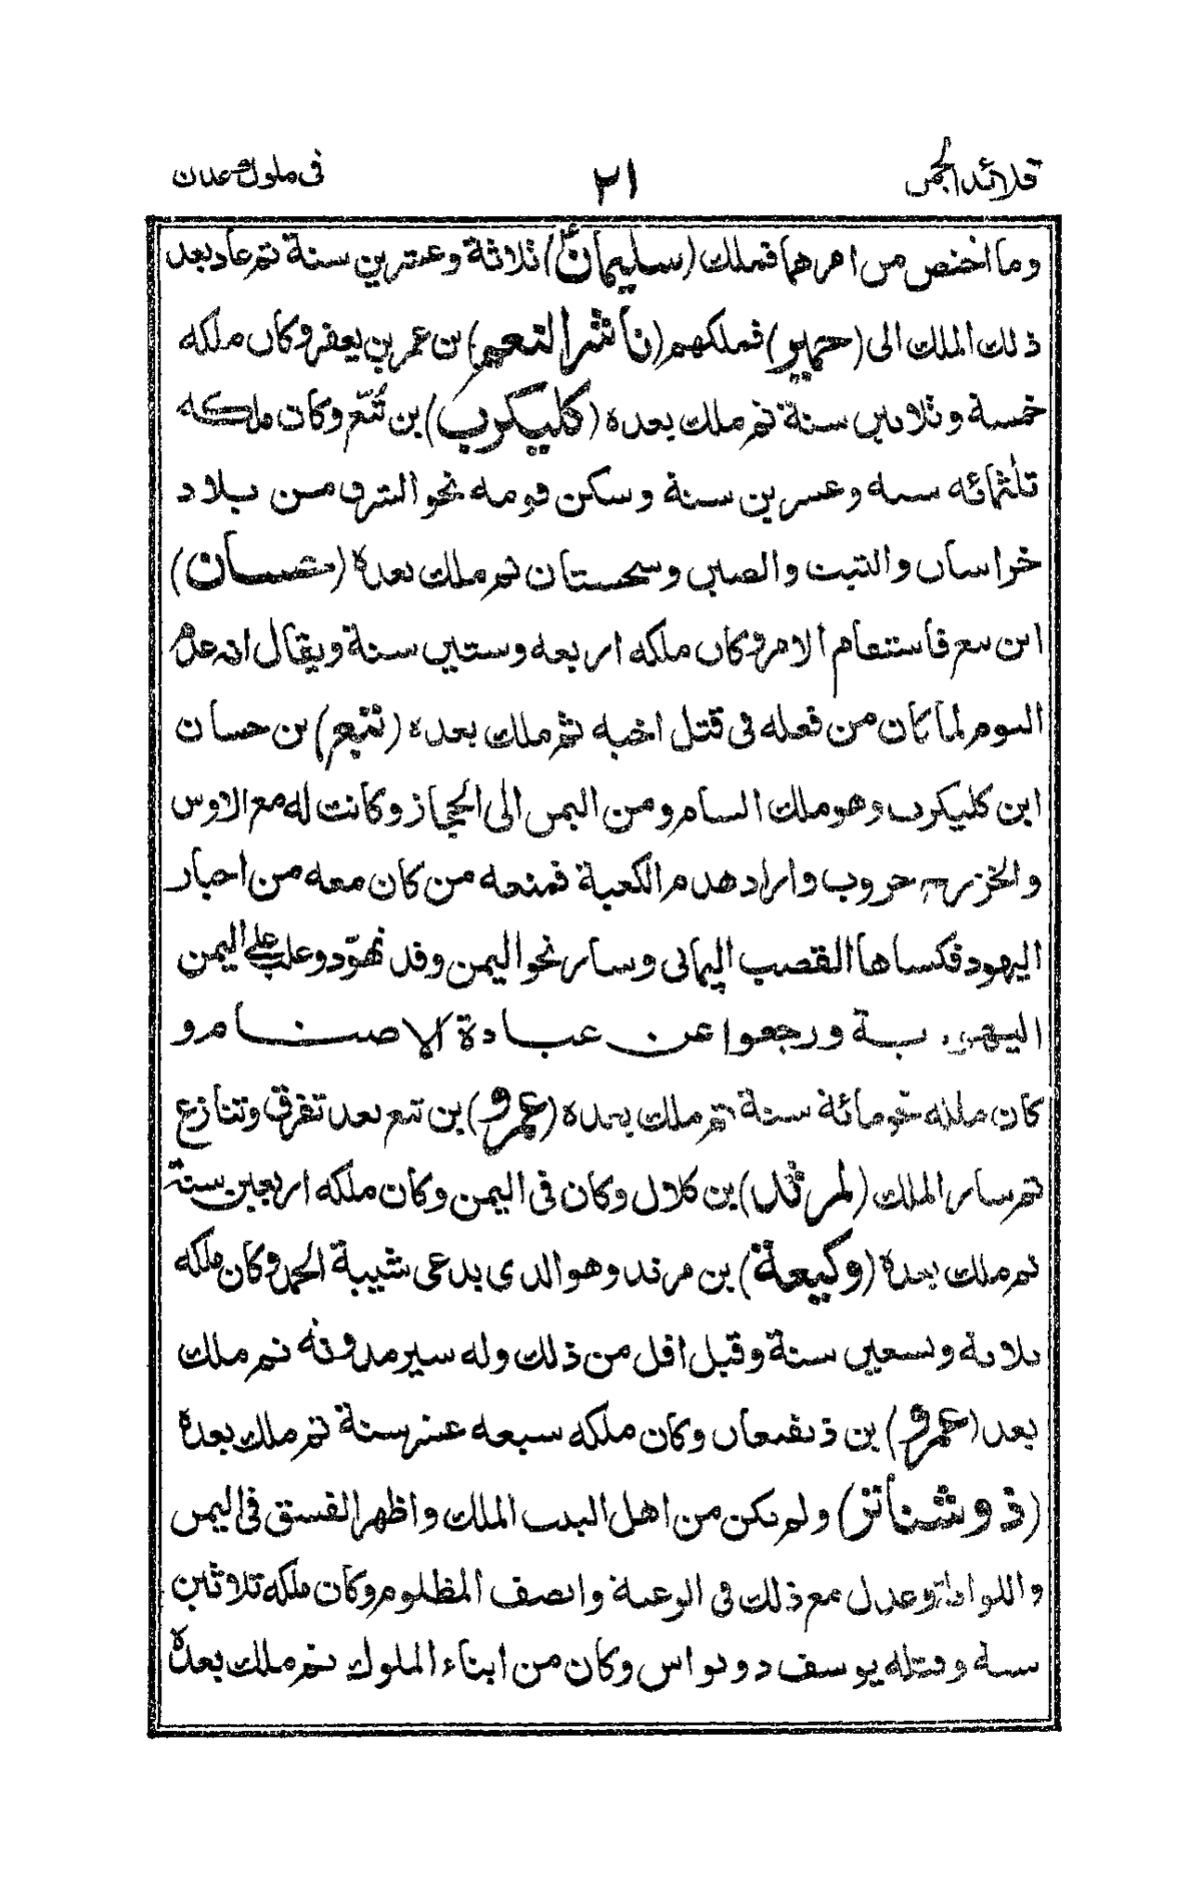 قلائد الجمن ٢١ فى ملوك عدن
وما اختص من امرهما فملك (سليمانؑ) ثلاثة وعشرين سنة ثم عاد بعد
ذلك الملك الى (حمير) فملكهم (ناشر النعم) بن عمر بن يعفر وكان ملكه
خمسة وثلاثين سنة ثم ملك بعده (كليكرب) بن تُبّع وكان ملكه
ثلثمائه سنه وعشرين سنة وسكن قومه نحو الشرق من بلاد
خراسان والتبت والصين وسجستان ثم ملك بعده (حسان)
ابن تبع فاستقام الامر وكان ملكه اربعه وستين سنة ويقال انه عدم
النوم لما كان من فعله فى قتل اخيه ثم ملك بعده (تبع) بن حسان
ابن كليكرب وهو ملك السام ومن اليمن الى الحجاز وكانت له مع الاوس
والخزرج حروب واراد هدم الكعبة فمنعه من كان معه من احبار
اليهود فكساها القصب اليمانى وسار نحو اليمن وقد تهوّد وغلب على اليمن
اليهودية ورجعوا عن عبادة الاصنام و
كان ملكه نحو مائة سنة ثم ملك بعده (عمرو) بن تبع بعد تفرق وتنازع
ثم سار الملك (لمرثد) بن كلال وكان فى اليمن وكان ملكه اربعين سنة
ثم ملك بعده (وكيعة) بن مرثد وهو الذى يدعى شيبة الحمد وكان ملكه
ثلاثة وتسعين سنة وقيل اقل من ذلك وله سير مدونه ثم ملك
بعد (عمرو) بن ذيقيعان وكان ملكه سبعه عشر سنة ثم ملك بعده
(ذو شناتز) ولم يكن من اهل البيت الملك واظهر الفسق فى اليمن
واللواط وعدل مع ذلك فى الرعية وانصف المظلوم وكان ملكه ثلاثين
سنة وقتله يوسف ذو نواس وكان من ابناء الملوك ثم ملك بعده